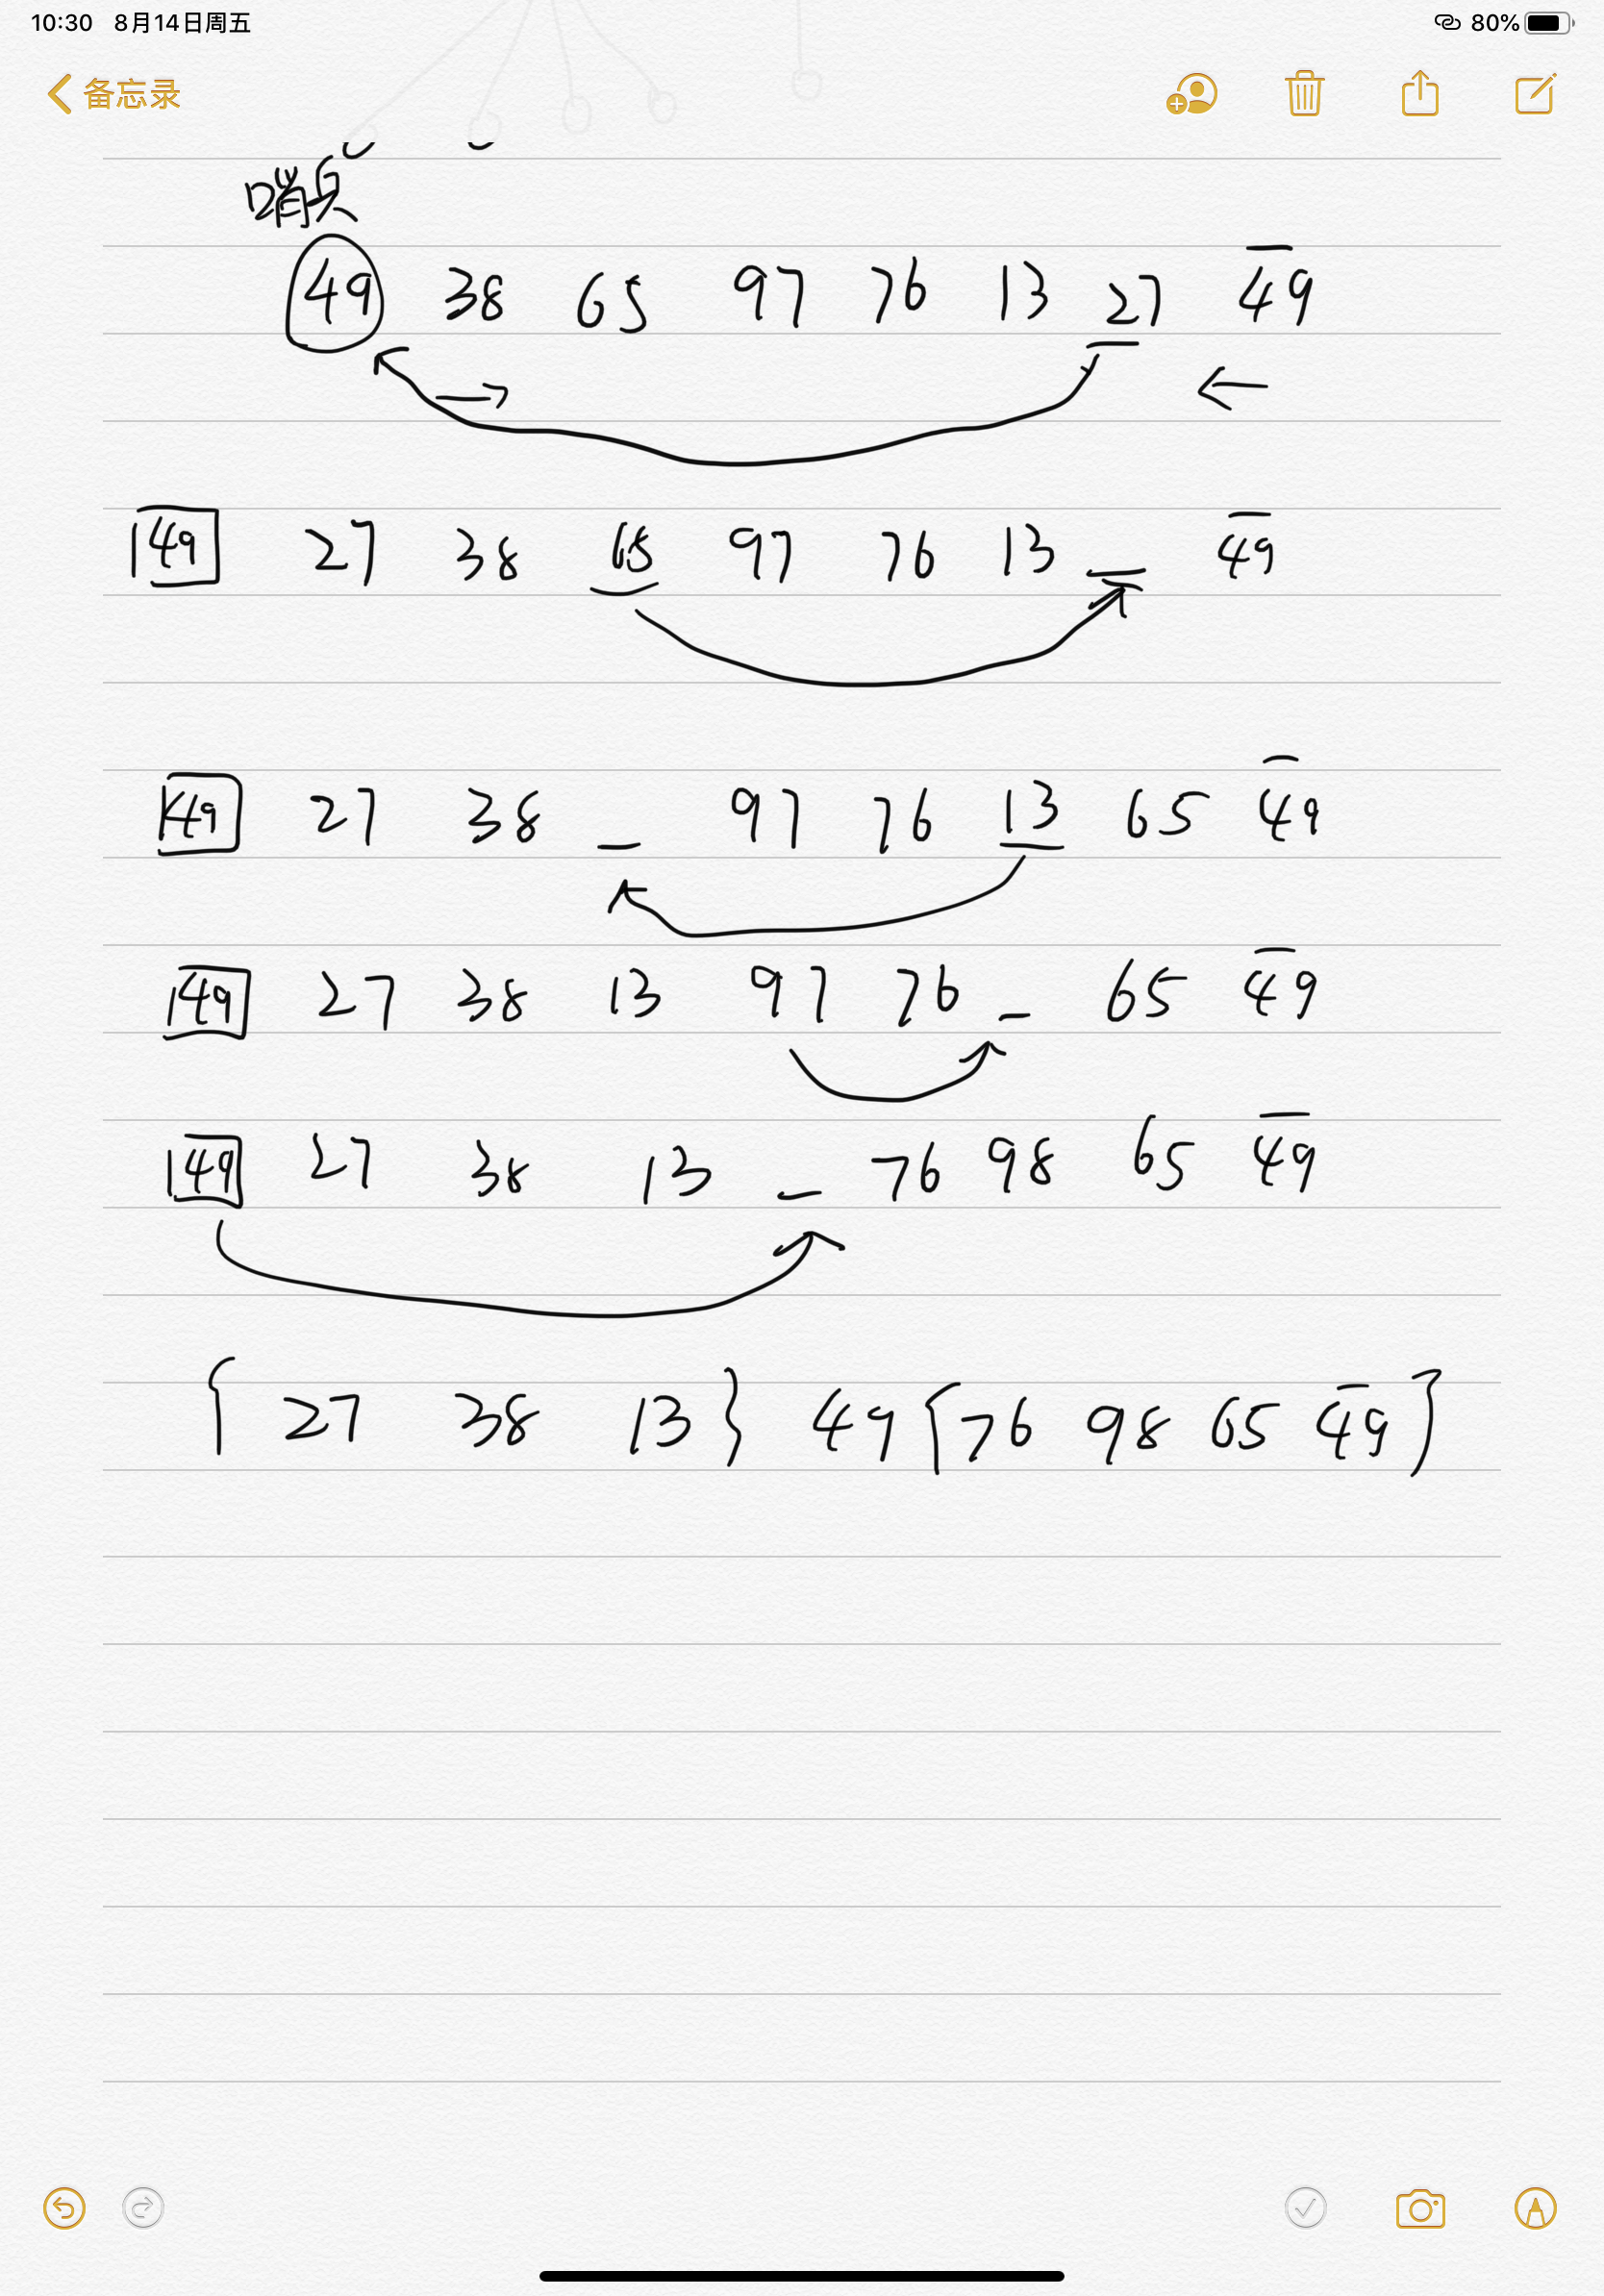 10:30 8月14日周五 80%
备忘录
哨兵
49 38 65 97 76 13 27 49
49 27 38 65 97 76 13 _ 49
49 27 38 _ 97 76 13 65 49
49 27 38 13 97 76 _ 65 49
49 27 38 13 _ 76 98 65 49
{ 27 38 13 } 49 { 76 98 65 49 }